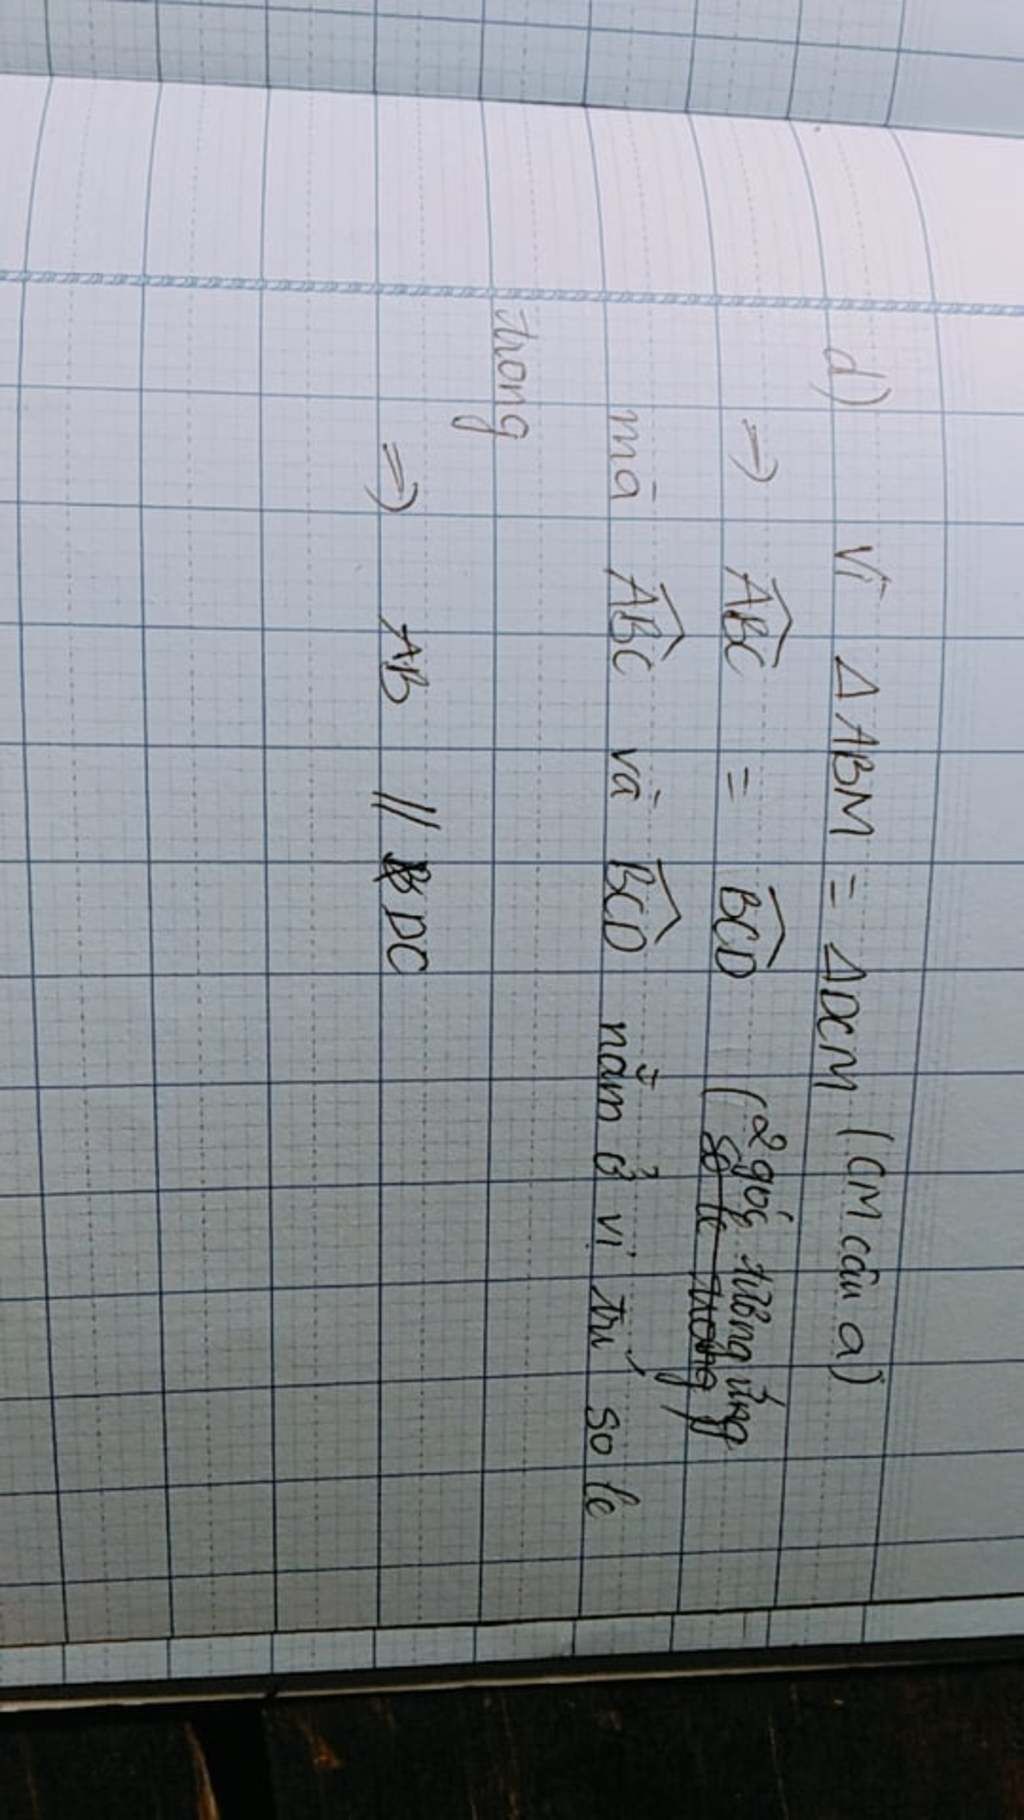 d) Vì ΔABM = ΔDCM (CM câu a)
=> ABC = BCD (2 góc tương ứng
so le trong)
mà ABC và BCD nằm ở vị trí so le
trong
=> AB // DC